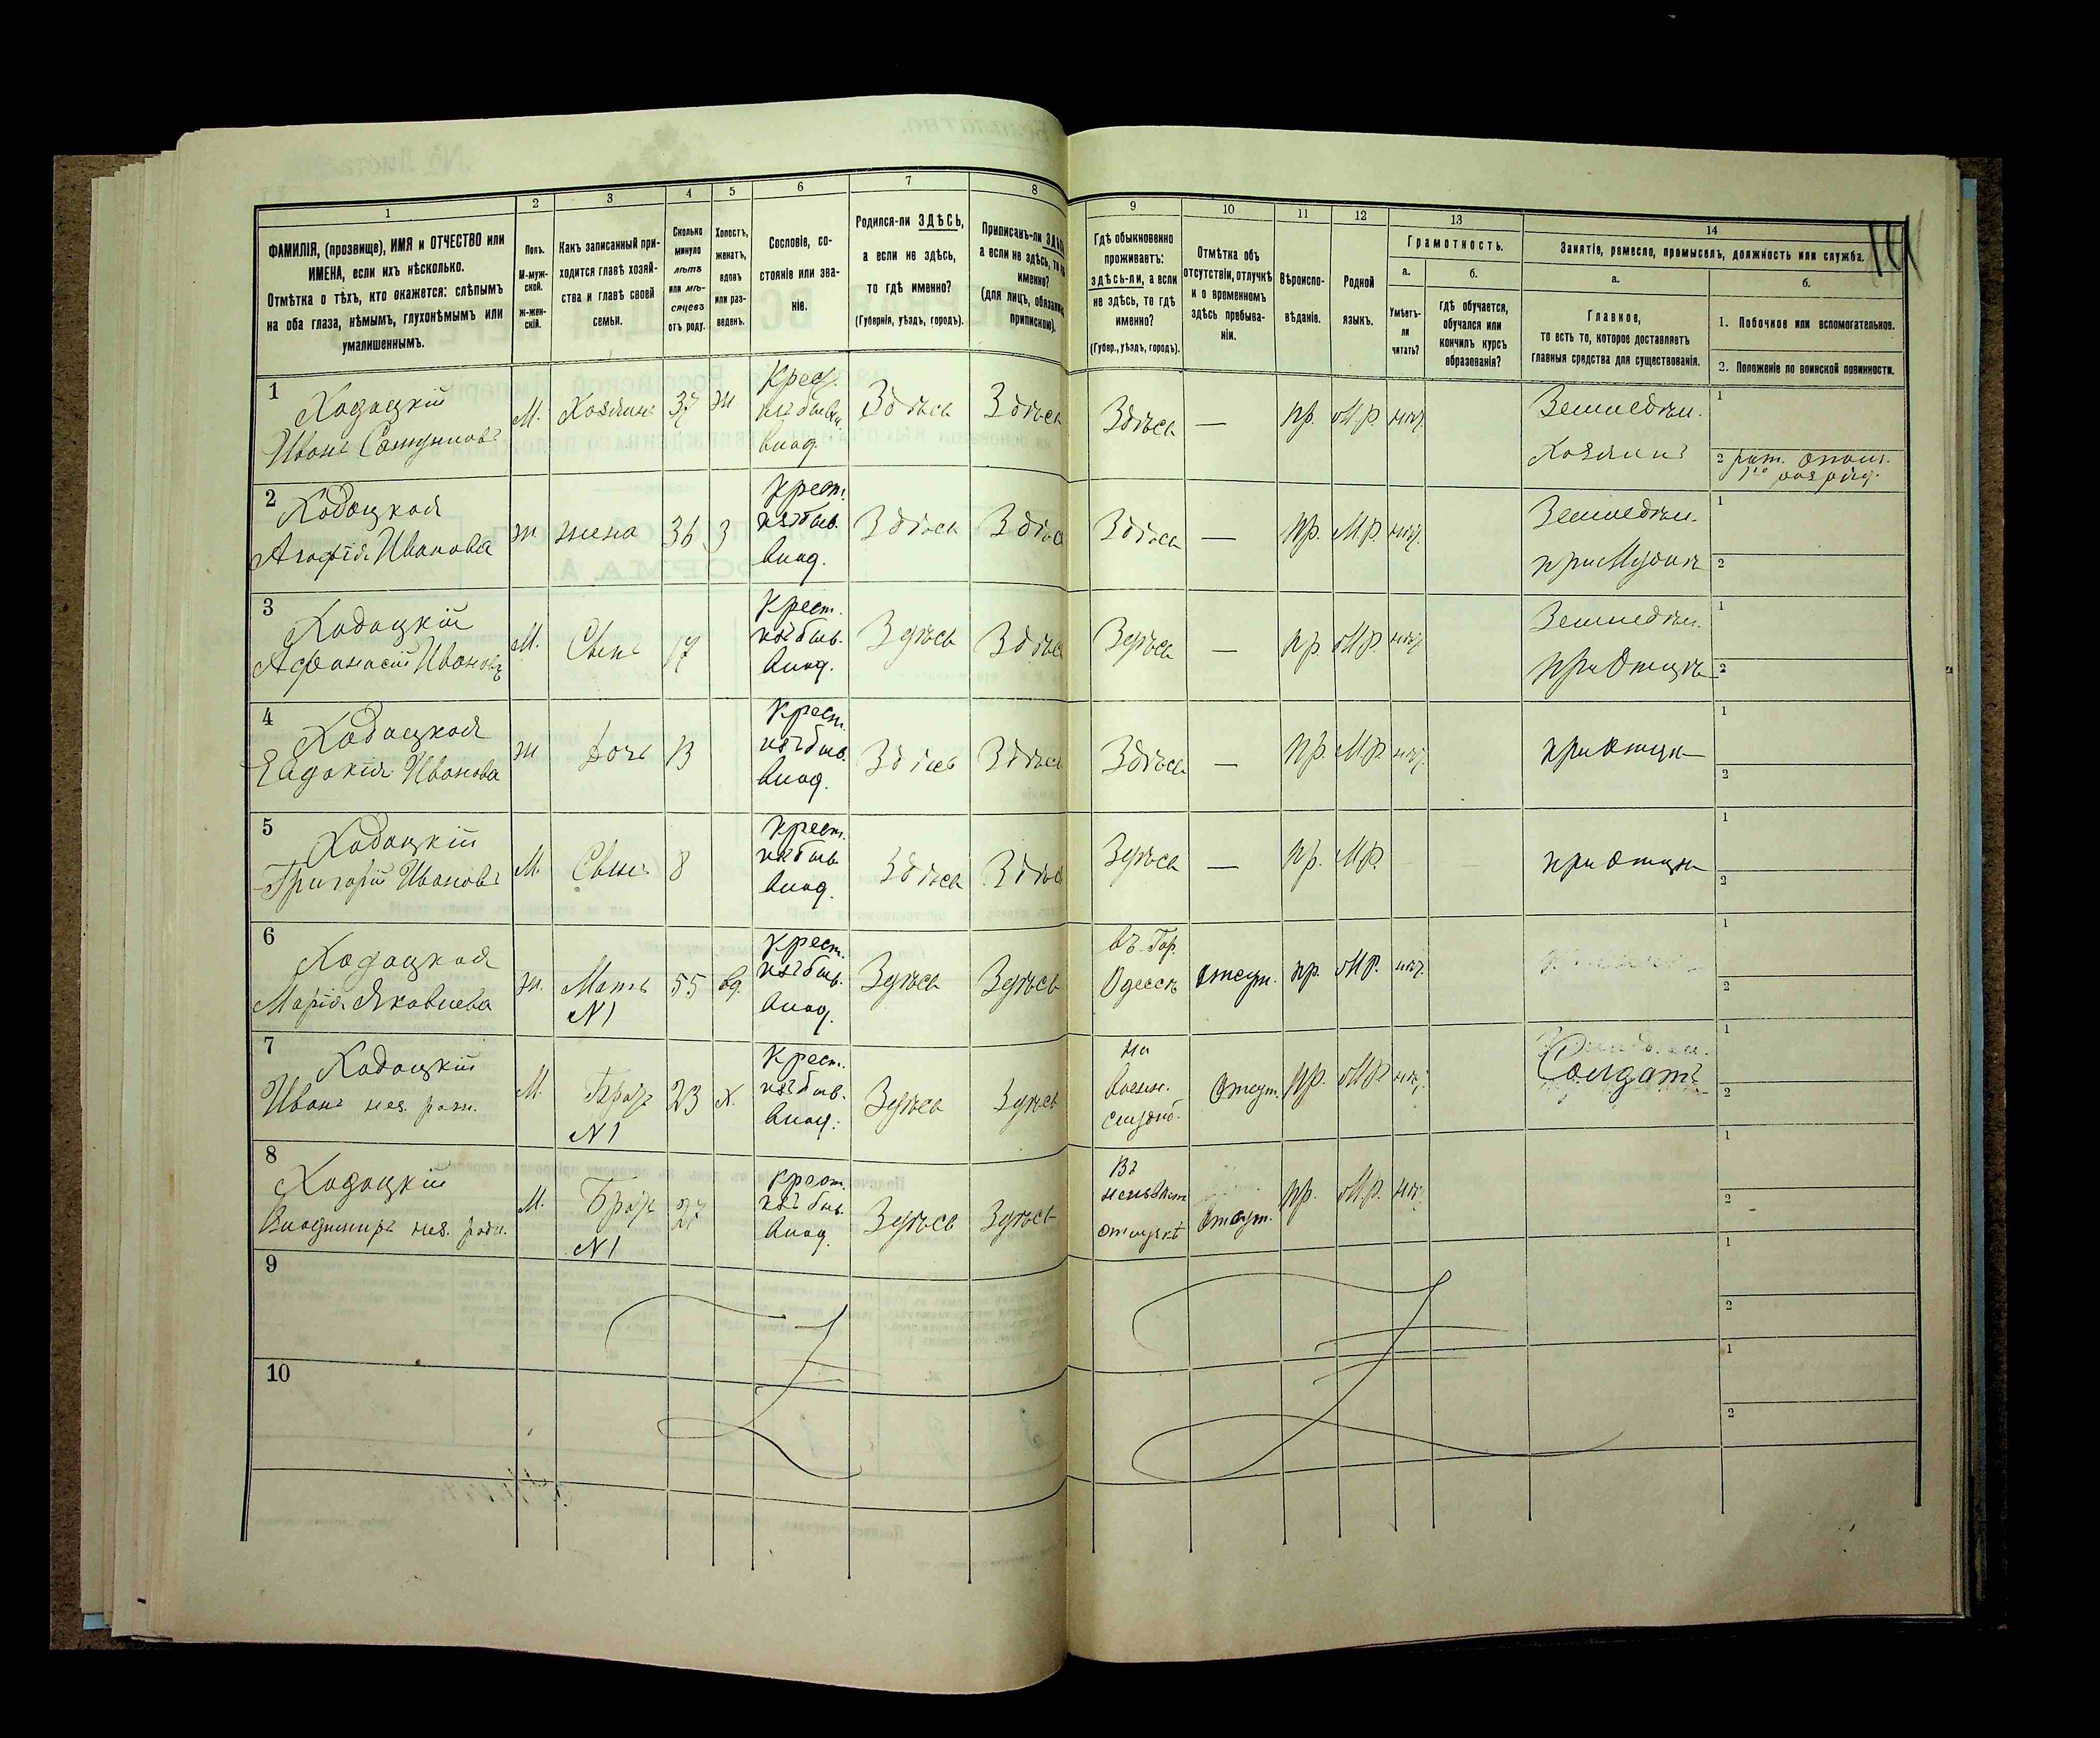 1 2 3 4 5 6 7 8 9 10 11 12 13 14
ФАМИЛІЯ, (прозвище), ИМЯ и ОТЧЕСТВО или
ИМЕНА, если ихъ нѣсколько.
Отмѣтка о тѣхъ, кто окажется: слѣпымъ
на оба глаза, нѣмымъ, глухонѣмымъ или
умалишеннымъ.
Полъ.
М-муж-
ской.
Ж-жен-
скій.
Какъ записанный при-
ходится главѣ хозяй-
ства и главѣ своей
семьи.
Сколько
минуло
лѣтъ
или мѣ-
сяцевъ
отъ роду.
Холостъ,
женатъ,
вдовъ
или раз-
веденъ.
Сословіе, со-
стояніе или зва-
ніе.
Родился-ли ЗДѢСЬ,
а если не здѣсь,
то гдѣ именно?
(Губернія, уѣздъ, городъ).
Приписанъ-ли
а если не здѣсь,
именно?
(для лицъ,
припискою).
Гдѣ обыкновенно
проживаетъ:
здѣсь-ли, а если
не здѣсь, то гдѣ
именно?
(Губер., уѣздъ, городъ).
Отмѣтка объ
отсутствіи, отлучкѣ
и о временномъ
здѣсь пребыва-
ніи.
Вѣроиспо-
вѣданіе.
Родной
языкъ.
Грамотность.
а.
Умѣетъ-
ли
читать?
б.
гдѣ обучается,
обучался или
кончилъ курсъ
образованія?
Занятіе, ремесло, промыселъ, должность или служба.
а.
Главное,
то есть то, которое доставляетъ
главныя средства для существованія.
б.
1. Побочное или вспомогательное.
2. Положеніе по воинской повинности.
1
Кодацкій
Иванъ
М. Хозяинъ 37 ж
Крест.
изъ бывш.
Влад.
Здѣсь Здѣсь Здѣсь — пр. М.Р. нѣт.
Земледѣл.
Хозяинъ
1
2 рат. опол.
1го разряд.
2
Кодацкая
Агафія Иванова
ж жена 36 З
Крест.
изъ быв.
Влад.
Здѣсь Здѣсь Здѣсь — пр. М.Р. нѣт.
Земледѣл.
при Мужѣ
1
2
3
Кодацкій
Афанасій Ивановъ
М. Сынъ 17
Крест.
изъ быв.
Влад.
Здѣсь Здѣсь Здѣсь — пр М.Р. нѣт
Земледѣл.
при Отцѣ
1
2
4
Кодацкая
Евдокія Иванова
ж Дочь 13
Крест.
изъ быв.
Влад.
Здѣсь Здѣсь Здѣсь — пр. М.Р. нѣт.
при отцѣ
1
2
5
Кодацкій
Григорій Ивановъ
М. Сынъ 8
Крест.
изъ быв
Влад.
Здѣсь Здѣсь Здѣсь — пр. М.Р.
при отцѣ
1
2
6
Кодацкая
Марія Яковлева
ж. Мать 55 вд.
N 1
Крест.
изъ быв.
Влад.
Здѣсь Здѣсь
въ Гор.
Одессѣ
Отсут. пр. М.Р. нѣт.
1
2
7
Кодацкій
Иванъ нез. рожд.
М. Братъ 23 х.
N 1
Крест.
изъ быв.
Влад.
Здѣсь Здѣсь
на
военн.
службѣ.
Отсут. пр. М.Р. нѣт.
Солдатъ
1
2
8
Кодацкій
Владимиръ нез. рожд.
М. Братъ 27
N 1
Крест.
изъ быв.
Влад.
Здѣсь Здѣсь
Въ
неизвѣст
отлучкѣ
Отсут. пр. М.Р. нѣт.
1
2
9
1
2
10
1
2